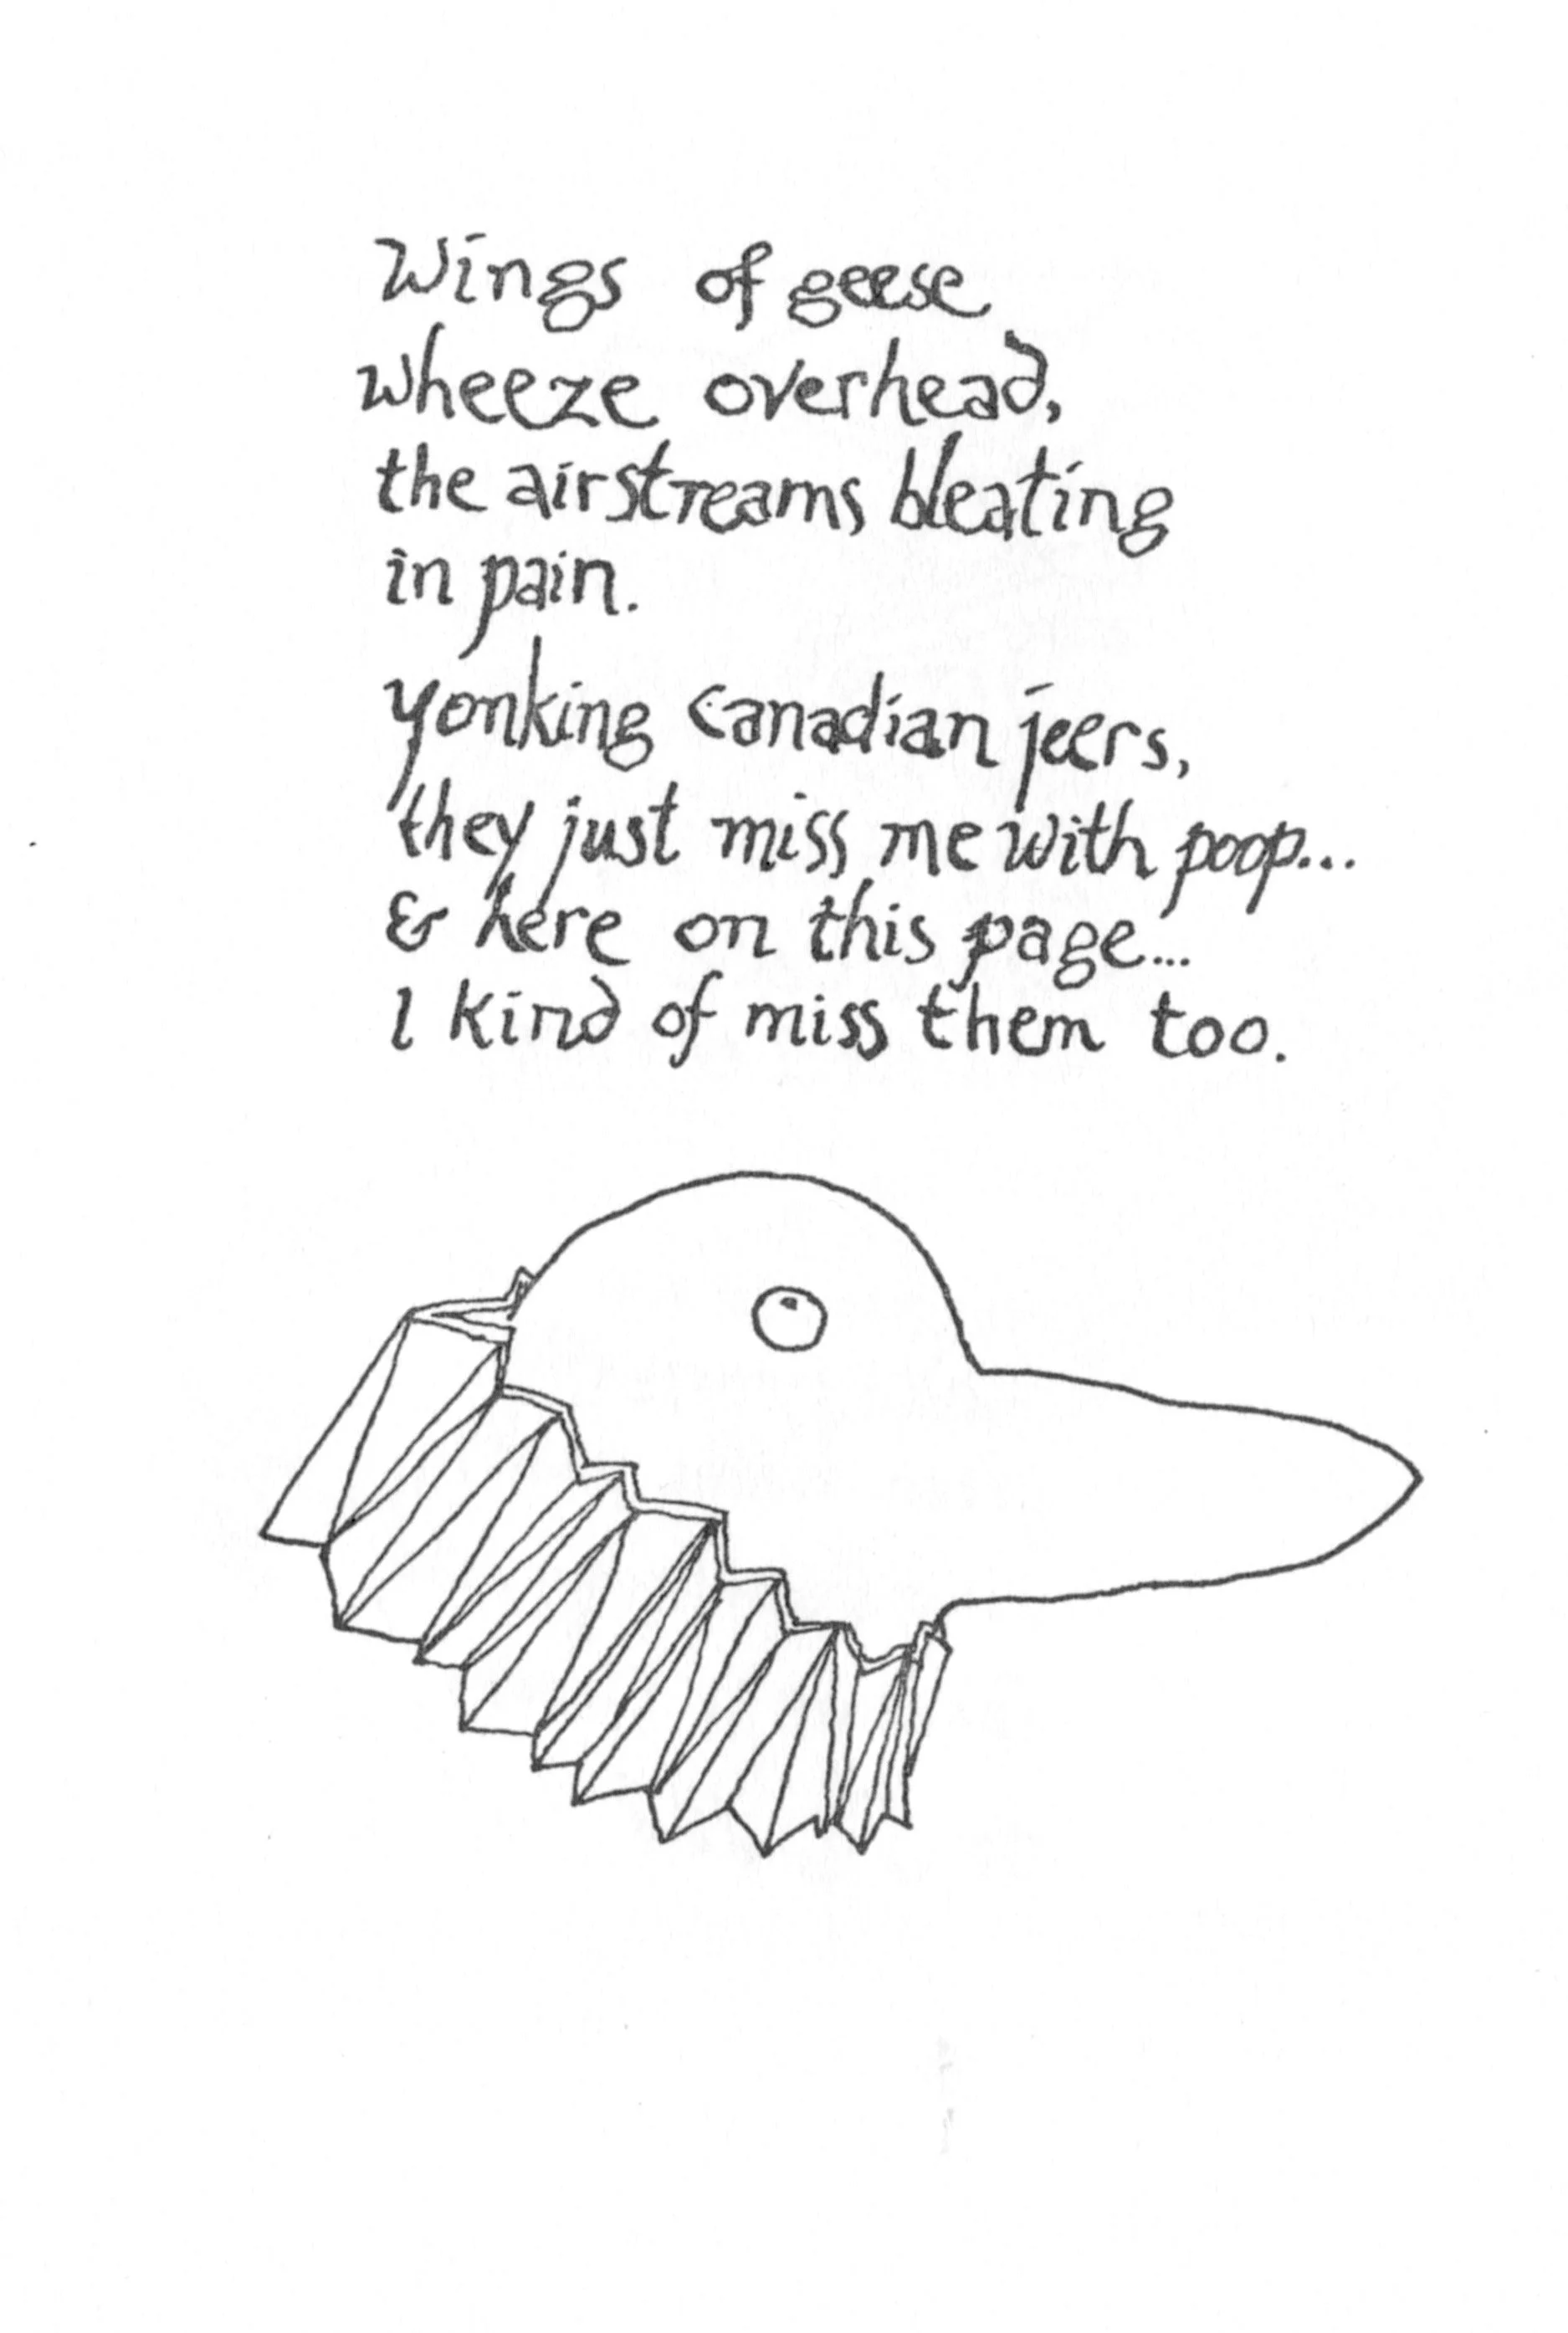 Wings of geese
wheeze overhead,
the airstreams bleating
in pain.
yonking Canadian jeers,
they just miss me with poop...
& here on this page...
I kind of miss them too.